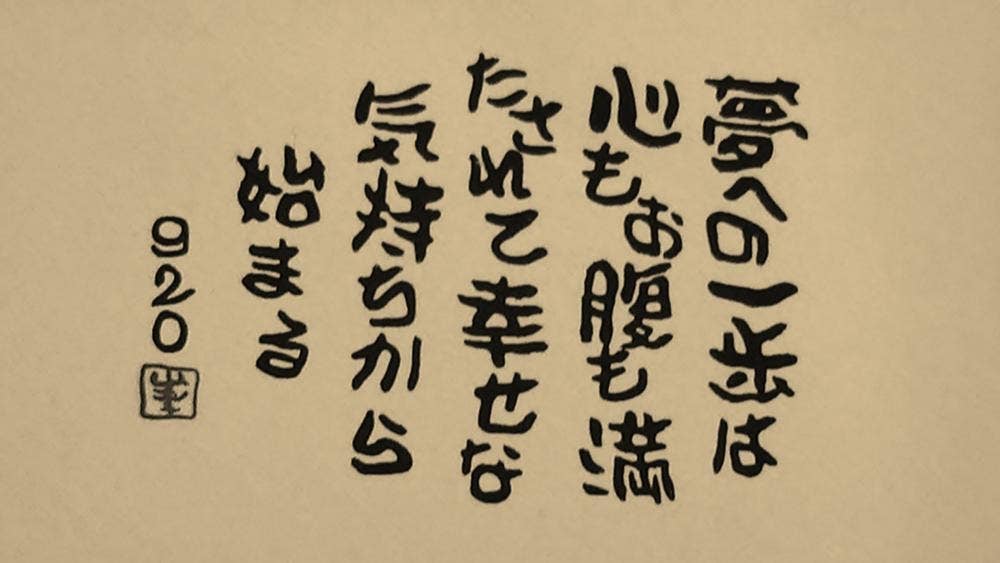 夢への一歩は
心もお腹も満
たされて幸せな
気持ちから
始まる
920